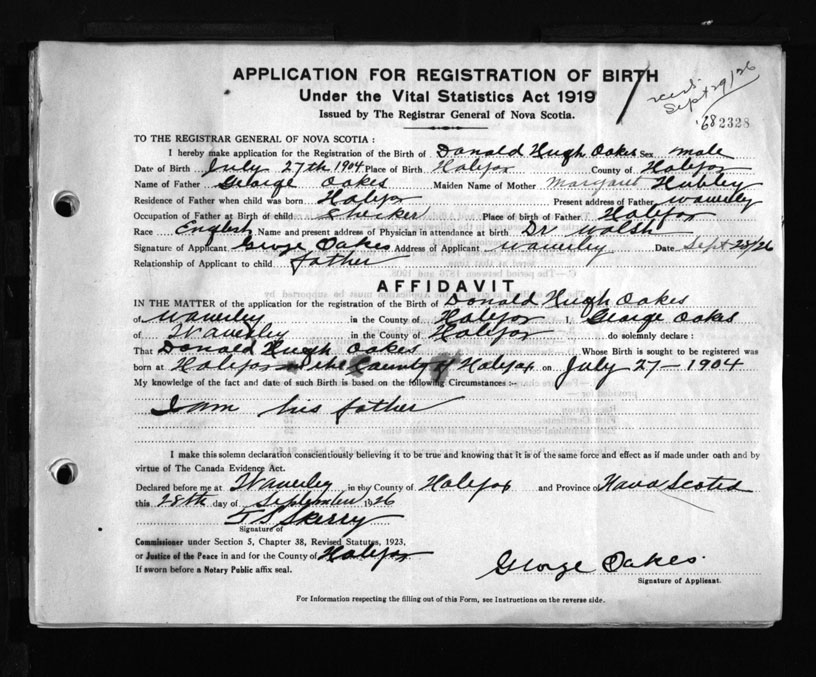 APPLICATION FOR REGISTRATION OF BIRTH
Under the Vital Statistics Act 1919
Issued by The Registrar General of Nova Scotia.
recd. Sept 29/26
2328
TO THE REGISTRAR GENERAL OF NOVA SCOTIA:
I hereby make application for the Registration of the Birth of Donald Hugh Oakes Sex male
Date of Birth July 27th 1904 Place of Birth Halifax County of Halifax
Name of Father George Oakes Maiden Name of Mother Margaret Hubley
Residence of Father when child was born Halifax Present address of Father Waverley
Occupation of Father at Birth of child Checker Place of birth of Father Halifax
Race English Name and present address of Physician in attendance at birth Dr Walsh
Signature of Applicant George Oakes Address of Applicant Waverley Date Sept 28/26
Relationship of Applicant to child father
AFFIDAVIT
IN THE MATTER of the application for the registration of the Birth of Donald Hugh Oakes
of Waverley in the County of Halifax I, George Oakes
of Waverley in the County of Halifax do solemnly declare:
That Donald Hugh Oakes Whose Birth is sought to be registered was
born at Halifax in the County of Halifax on July 27 - 1904
My knowledge of the fact and date of such Birth is based on the following Circumstances :-
I am his father
I make this solemn declaration conscientiously believing it to be true and knowing that it is of the same force and effect as if made under oath and by
virtue of The Canada Evidence Act.
Declared before me at Waverley in the County of Halifax and Province of Nova Scotia
this 28th day of September 1926
Skerry
Signature of
Commissioner under Section 5, Chapter 38, Revised Statutes, 1923,
or Justice of the Peace in and for the County of Halifax
If sworn before a Notary Public affix seal.
George Oakes.
Signature of Applicant.
For Information respecting the filling out of this Form, see Instructions on the reverse side.